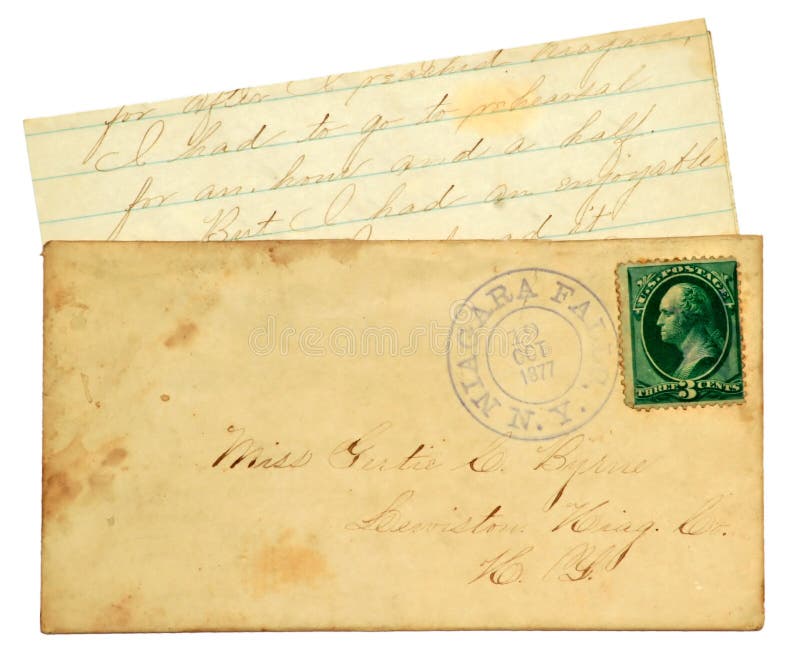 for after I reached Niagara,
I had to go to rehearsal
for an hour and a half.
But I had an enjoyable
had it
NIAGARA FALLS, N.Y.
12
OCT
1877
U.S. POSTAGE
THREE 3 CENTS
Miss Gertie C. Byrne
Lewiston Niag. Co.
N. Y.
dreamstime